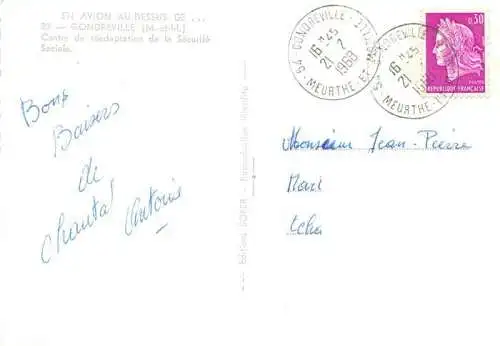 EN AVION AU DESSUS DE ...
GONDREVILLE (M.-et-M.)
Centre de réadaptation de la Sécurité
Sociale.
Bons
Baisers
de
Chantal
Antoine
54 - GONDREVILLE
16 H 45
21 - 2
1968
MEURTHE-ET-MOSELLE
16 H 45
21 - 2
1968
0,30
REPUBLIQUE FRANÇAISE
Monsieur Jean-Pierre